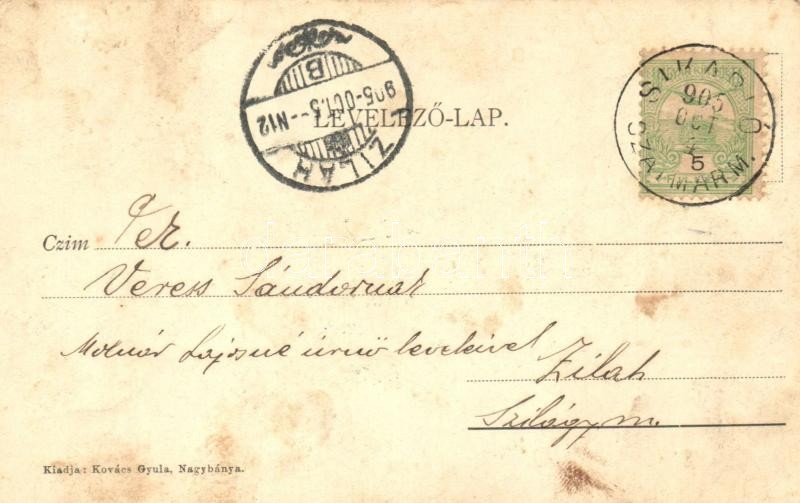 ZILAH
905-OCT.5--N12
B
LEVELEZŐ-LAP.
SZATMÁRM.
905
OCT
5
5
Czim
Veress Sándornak
Molnár Lajosné úrnő leveleivel
Zilah
Szilágy m.
Kiadja: Kovács Gyula, Nagybánya.